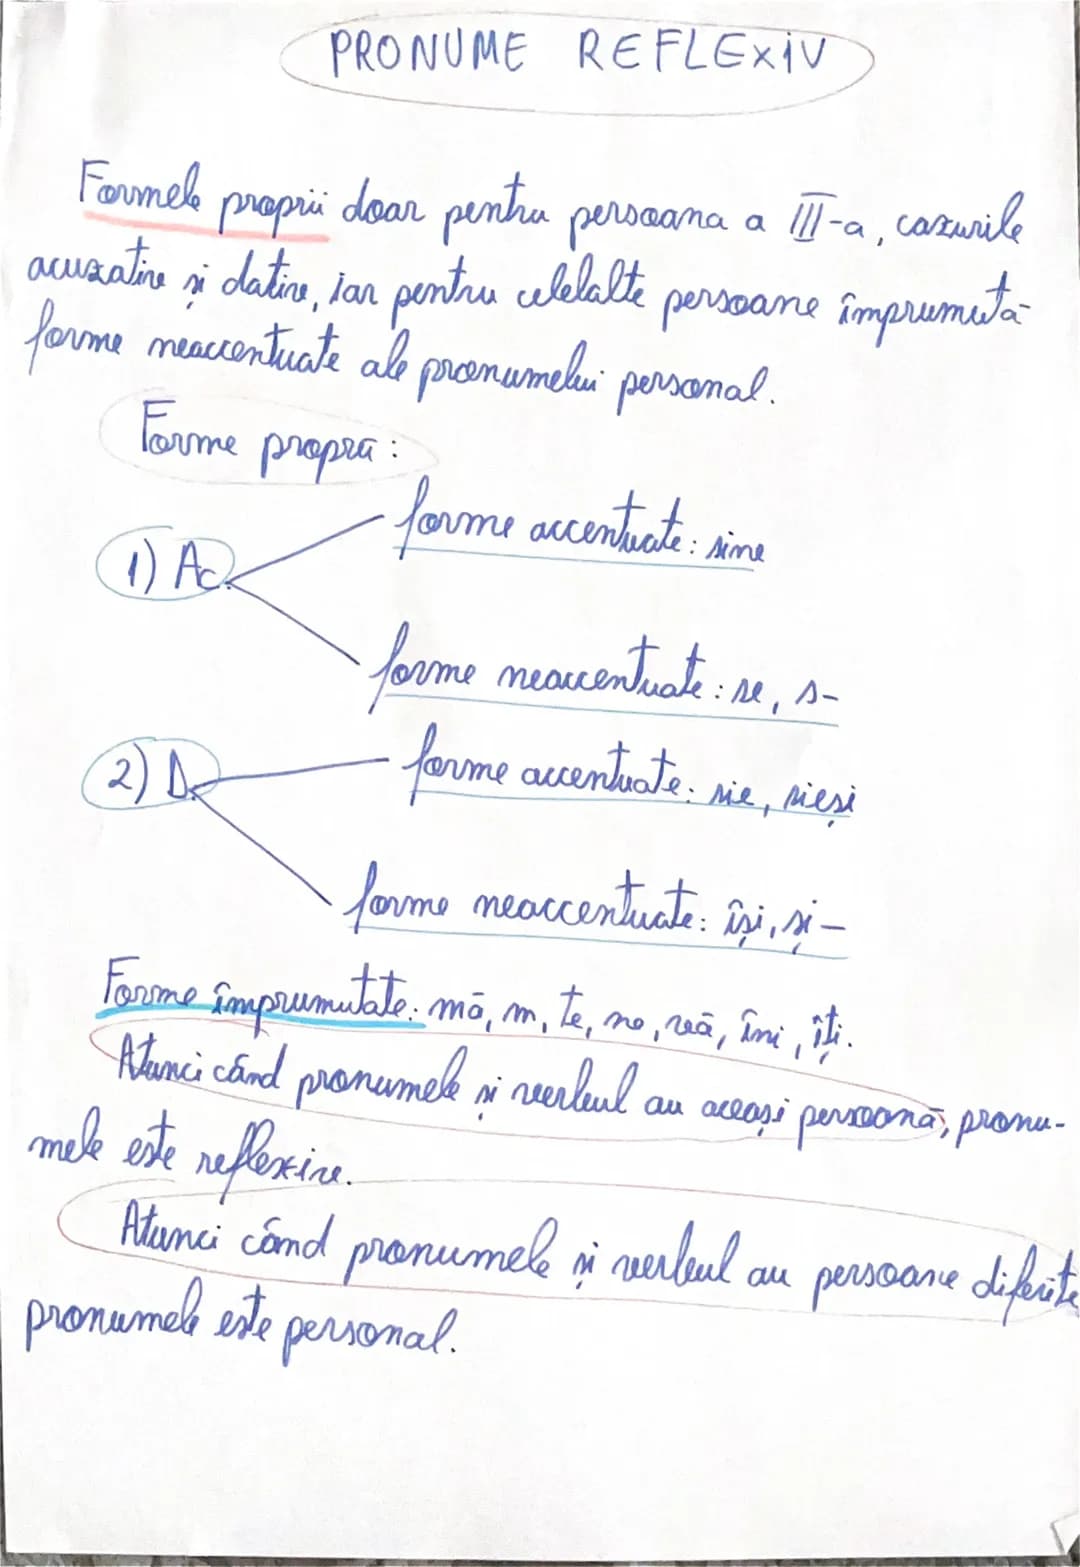 PRONUME REFLEXIV
Formele proprii doar pentru persoana a III-a, cazurile
acuzativ și dativ, iar pentru celelalte persoane împrumută
forme neaccentuate ale pronumelui personal.
Forme propra:
1) Ac. forme accentuate: sine
forme neaccentuate: se, s-
2) D. forme accentuate: sie, sieși
forme neaccentuate: își, și-
Forme împrumutate: mă, m, te, ne, vă, îmi, îți.
Atunci când pronumele și verbul au aceași persoană, pronu-
mele este reflexiv.
Atunci când pronumele și verbul au persoane diferite
pronumele este personal.